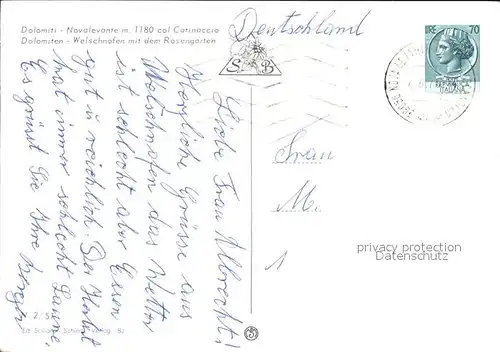 Dolomiti - Novalevante m. 1180 col Catinaccio
Dolomiten - Welschnofen mit dem Rosengarten
Deutschland
LIRE 70
S B
Frau
M.
1
privacy protection
Datenschutz
Liebe Frau Albrecht!
Herzliche Grüsse aus
Welschnofen das Wetter
ist schlecht aber Essen
gut u reichlich. Der Herbst
hat immer schlecht Laune.
Es grüsst Sie Ihre